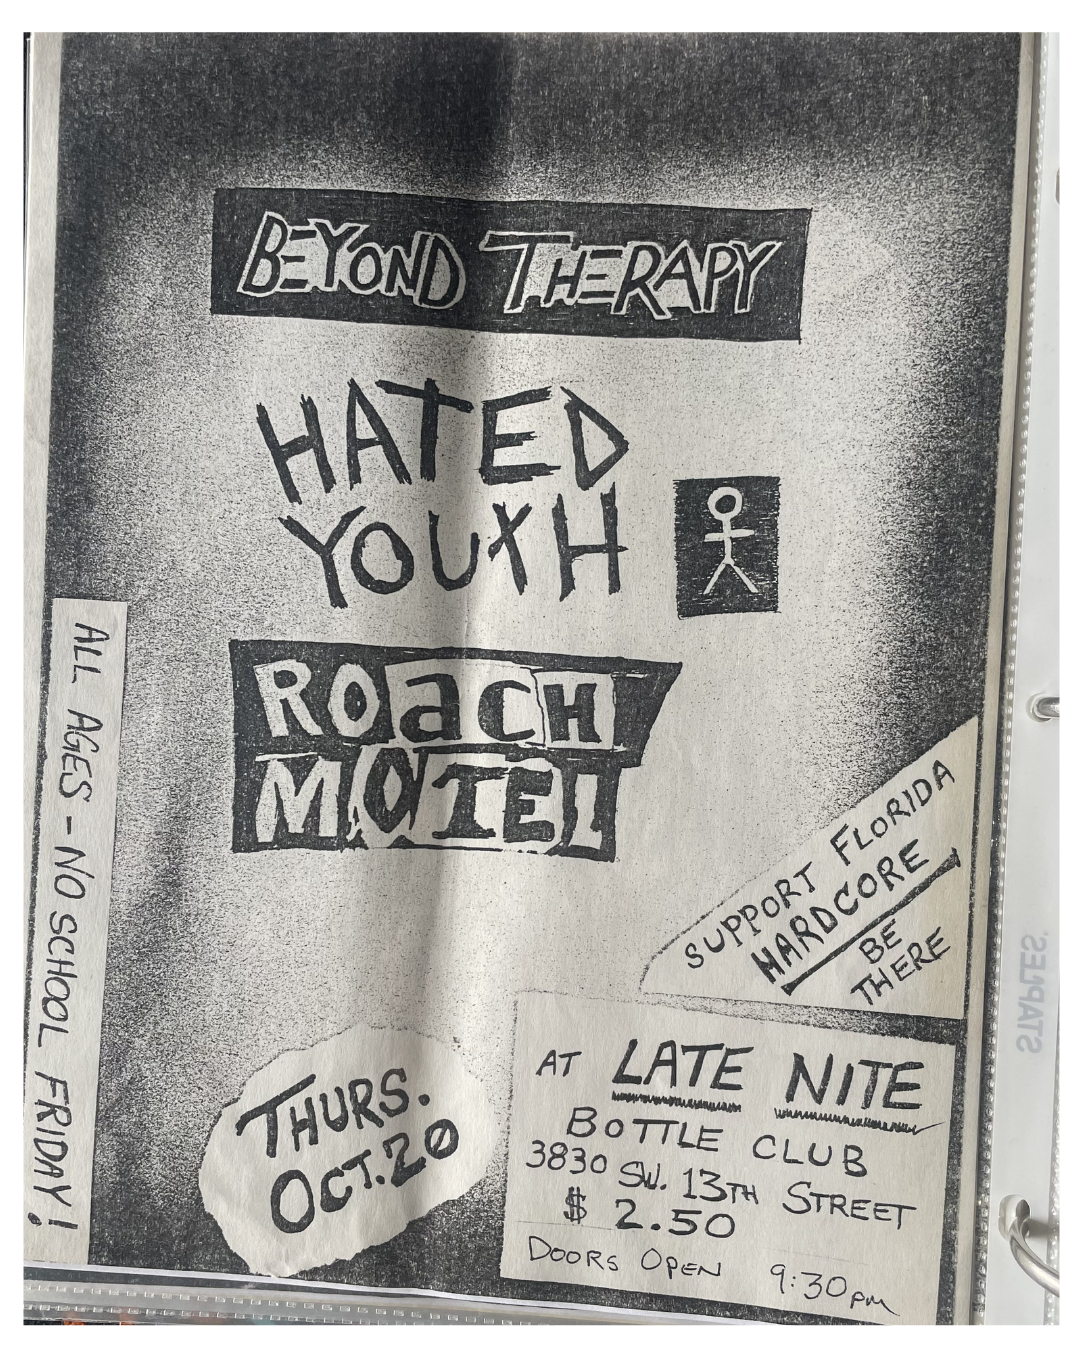 BEYOND THERAPY
HATED
YOUTH
ROACH
MOTEL
ALL AGES - NO SCHOOL FRIDAY!
SUPPORT FLORIDA
HARDCORE
BE
THERE
THURS.
OCT. 20
AT LATE NITE
BOTTLE CLUB
3830 SW. 13TH STREET
$ 2.50
DOORS OPEN 9:30 PM
STAPLES